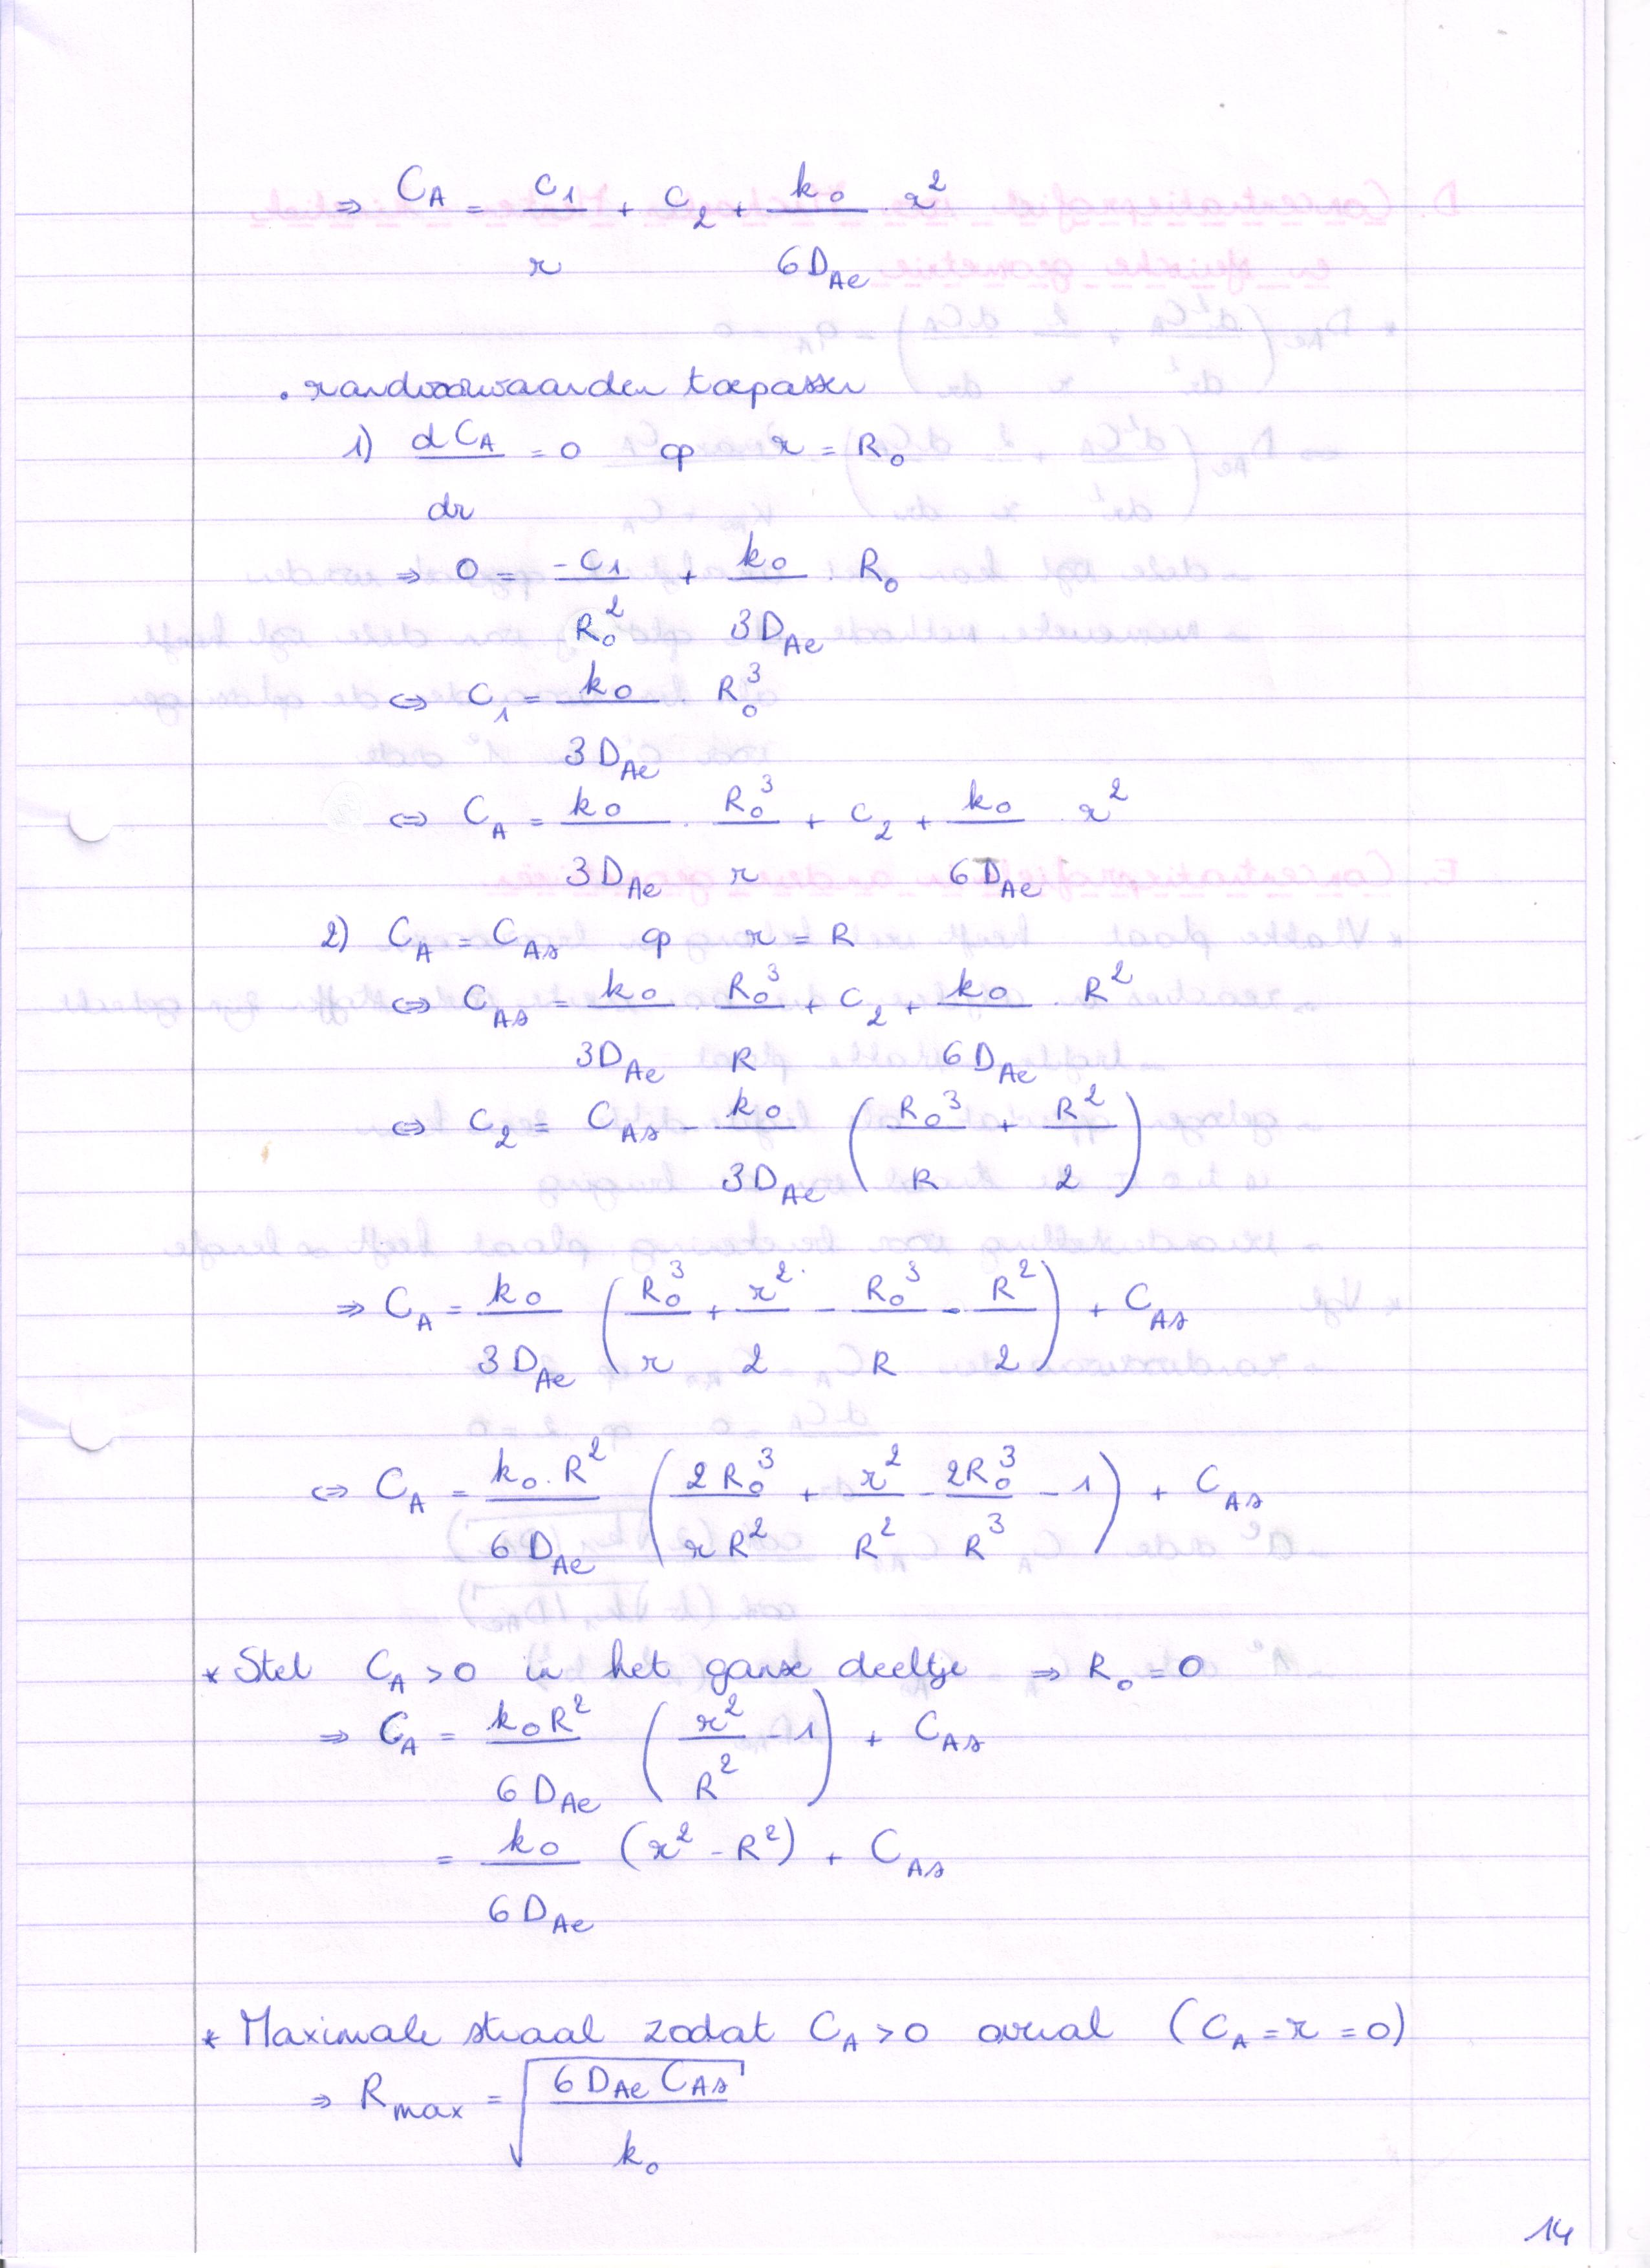 ⇒ C_A = C₁/r + C₂ + k₀/(6D_Ae) · r²
. randvoorwaarden toepassen
1) dC_A/dr = 0 op r = R₀
⇒ 0 = -C₁/R₀² + k₀/(3D_Ae) R₀
⇔ C₁ = k₀/(3D_Ae) R₀³
⇔ C_A = k₀/(3D_Ae) · R₀³/r + C₂ + k₀/(6D_Ae) · r²
2) C_A = C_As op r = R
⇔ C_As = k₀/(3D_Ae) · R₀³/R + C₂ + k₀/(6D_Ae) · R²
⇔ C₂ = C_As - k₀/(3D_Ae) (R₀³/R + R²/2)
⇒ C_A = k₀/(3D_Ae) (R₀³/r + r²/2 - R₀³/R - R²/2) + C_As
⇔ C_A = k₀·R²/(6D_Ae) (2R₀³/(rR²) + r²/R² - 2R₀³/R³ - 1) + C_As
* Stel C_A > 0 in het ganse deeltje ⇒ R₀ = 0
⇒ C_A = k₀R²/(6D_Ae) (r²/R² - 1) + C_As
= k₀/(6D_Ae) (r² - R²) + C_As
* Maximale straal zodat C_A > 0 overal (C_A = r = 0)
⇒ R_max = √(6D_Ae C_As / k₀)
14